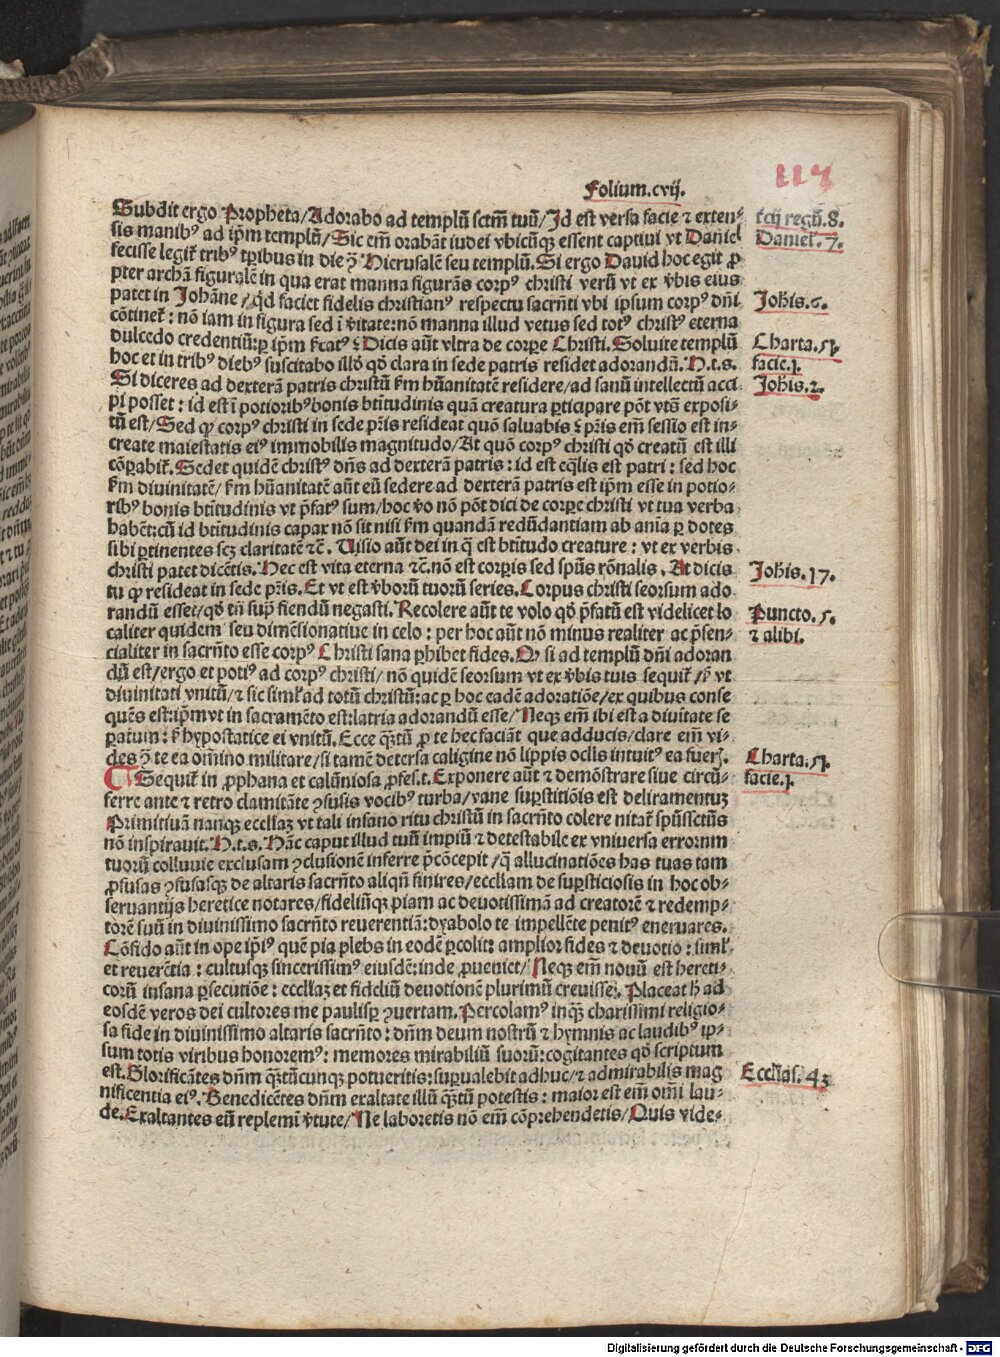 117
Folium.cvij.
Subdit ergo Propheta/Adorabo ad templū sctm̄ tuū/Id est versa facie ⁊ exten⸗
sis manibꝰ ad ip̄m templū/Sic em̄ orabāt iudei vbicūqꝫ essent captiui vt Daniel
fecisse legit̄ tribꝰ tꝑibus in die ꝯ̄ Hierusalē seu templū. Si ergo Dauid hoc egit ꝓ
pter archā figuralē in qua erat manna figurās corpꝰ christi verū vt ex v̄bis eius
patet in Johāne/qd̄ faciet fidelis christianꝰ respectu sacrn̄ti vbi ipsum corpꝰ dn̄i
cōtinet̄: nō iam in figura sed ī v̄itate: nō manna illud vetus sed totꝰ christꝰ eterna
dulcedo credentiū: ꝑ ip̄m
Dicis aūt vltra de corpe Christi. Soluite templū
hoc et in tribꝰ diebꝰ suscitabo illd̄ qd̄ clara in sede patris residet adorandū. H.t.s.
Si diceres ad dexterā patris christū km̄ hūanitatē residere/ad sanū intellectū acci
pi posset: id est ī potioribꝰ bonis btītudinis quā creatura ꝑticipare pōt vtō exposi⸗
tū est/Sed ꝙ corpꝰ christi in sede pr̄is resideat quō saluabis
pr̄is em̄ sessio est in⸗
create maiestatis eiꝰ immobilis magnitudo/At quō corpꝰ christi qd̄ creatū est illi
cōꝑabit̄. Sedet quidē christꝰ dn̄s ad dexterā patris: id est eq̄lis est patri: sed hoc
km̄ diuinitatē/km̄ hūanitatē aūt eū sedere ad dexterā patris est ip̄m esse in potio⸗
ribꝰ bonis btītudinis vt p̄fatꝰ sum/hoc v̄o nō pōt dici de corpe christi vt tua verba
habēt: cū id btītudinis capax nō sit nisi km̄ quandā redūdantiam ab aīa ꝑ dotes
sibi ꝑtinentes scꝫ claritatē ⁊c̄. Uisio aūt dei in q̄ est btītudo creature: vt ex verbis
christi patet dicētis. Hec est vita eterna ⁊c̄. nō est corꝑis sed spūs rōnalis. At dicis
tu ꝙ resideat in sede pr̄is. Et vt est v̄borū tuorū series. Corpus christi seorsum ado
randū esset/qd̄ tn̄ sup̄ fiendū negasti. Recolere aūt te volo qd̄ p̄fatū est videlicet lo
caliter quidem seu dimēsionatiue in celo: per hoc aūt nō minus realiter ac p̄sen⸗
cialiter in sacrn̄to esse corpꝰ Christi sana ꝑhibet fides. Q̄ si ad templū dn̄i adoran
dū est/ergo et potiꝰ ad corpꝰ christi/nō quidē seorsum vt ex v̄bis tuis sequit̄
vt
diuinitati vnitū/⁊ sic siml̄ ad totū christū: ac ꝑ hoc eadē adoratiōe/ex quibus conse
quēs est: ip̄m vt in sacramēto est: latria adorandū esse/Neqꝫ em̄ ibi est a diuitate se
ꝑatum:
hypostatice ei vnitū. Ecce q̄tū ꝓ te hec faciāt que adducis/clare em̄ vi⸗
des ꝯ̄ te ea om̄ino militare/si tamē detersa caligine nō lippis oclis intuitꝰ ea fuerꝭ.
Sequit̄ in ꝓphana et calūniosa ꝓfes.t. Exponere aūt ⁊ demōstrare siue circū⸗
ferre ante ⁊ retro clamitāte ꝯfusis vocibꝰ turba/vane suꝑstitiōis est deliramentuꝫ
Primitiuā nanqꝫ eccl̄iaꝫ vt tali insano ritu christū in sacrn̄to colere nitat̄ spūssctūs
nō inspirauit. H.t.s. Hāc caput illud tuū impiū ⁊ detestabile ex vniuersa errorum
tuorū colluuie exclusam ꝯclusionē inferre p̄cōcepit/q̄ allucinatiōes has tuas tam
ꝓfusas ꝯfusasqꝫ de altaris sacrn̄to aliqn̄ finires/eccl̄iam de suꝑsticiosis in hoc ob⸗
seruantijs heretice notares/fideliūqꝫ piam ac deuotissimā ad creatorē ⁊ redemp⸗
torē suū in diuinissimo sacrn̄to reuerentiā: dyabolo te impellēte penitꝰ eneruares.
Cōfido aūt in ope ip̄iꝰ quē pia plebs in eodē ꝑcolit: amplior fides ⁊ deuotio: siml̄
et reuerētia: cultusqꝫ sincerissimꝰ eiusdē: inde ꝓueniet/Neqꝫ em̄ nouū est hereti⸗
corū insana ꝑsecutiōe: eccl̄iaꝫ et fideliū deuotionē plurimū creuisse. Placeat h̄ ad
eosdē veros dei cultores me paulisꝑ ꝯuertam. Percolamꝰ inqꝫ charissimi religio⸗
sa fide in diuinissimo altaris sacrn̄to: dn̄m deum nostrū ⁊ hymnis ac laudibꝰ ip⸗
sum totis viribus honoremꝰ: memores mirabiliū suorū: cogitantes qd̄ scriptum
est. Glorificātes dn̄m q̄tūcunqꝫ potueritis: suꝑualebit adhuc/⁊ admirabilis mag
nificentia eiꝰ. Benedicētes dn̄m exaltate illū q̄tū potestis: maior est em̄ om̄i lau⸗
de. Exaltantes eū replemī v̄tute/Ne laboretis nō em̄ cōprehendetis/Quis vide⸗
regū.8.
Daniel̄.7.
Joh̄is.6.
Charta.51.
facie.1.
Joh̄is.2.
Joh̄is.17.
Puncto.5.
⁊ alibi.
Charta.51.
facie.1.
Eccl̄ias.43
Digitalisierung gefördert durch die Deutsche Forschungsgemeinschaft - DFG